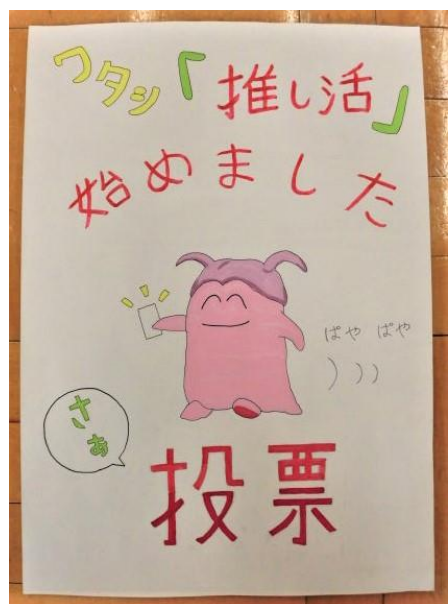 ワタシ「推し活」
始めました
ぱや ぱや
さぁ
投票